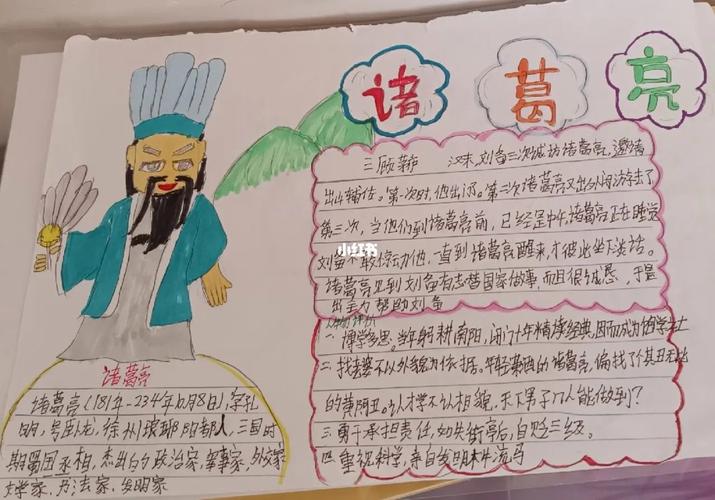 诸葛亮
三顾茅庐 汉末,刘备三次诚访诸葛亮,邀请
出山辅佐。第一次时,他出门。第二次诸葛亮又出外闲游去了
第三次,当他们到诸葛亮前,已经是中午,诸葛亮正在睡觉
刘备不敢惊动他,一直到诸葛亮醒来,才彼此坐下谈话。
诸葛亮见到刘备有志替国家做事,而且很诚恳,于是
出全力帮助刘备
人物评价
一、博学多思。当年躬耕南阳,闭门十年精读经典,因而成为饱学之士
二、找老婆不以外貌为依据。年轻英俊的诸葛亮,偏找了个其丑无比
的黄阿丑。以才学不以相貌,天下男子几人能做到?
三.勇于承担责任,如失街亭后,自贬三级。
四.重视科学,亲自发明木牛流马
诸葛亮
诸葛亮(181年-234年10月8日),字孔
明,号卧龙,徐州琅琊阳都人,三国时
期蜀国丞相,杰出的政治家、军事家、外交家
文学家、书法家、发明家
小红书